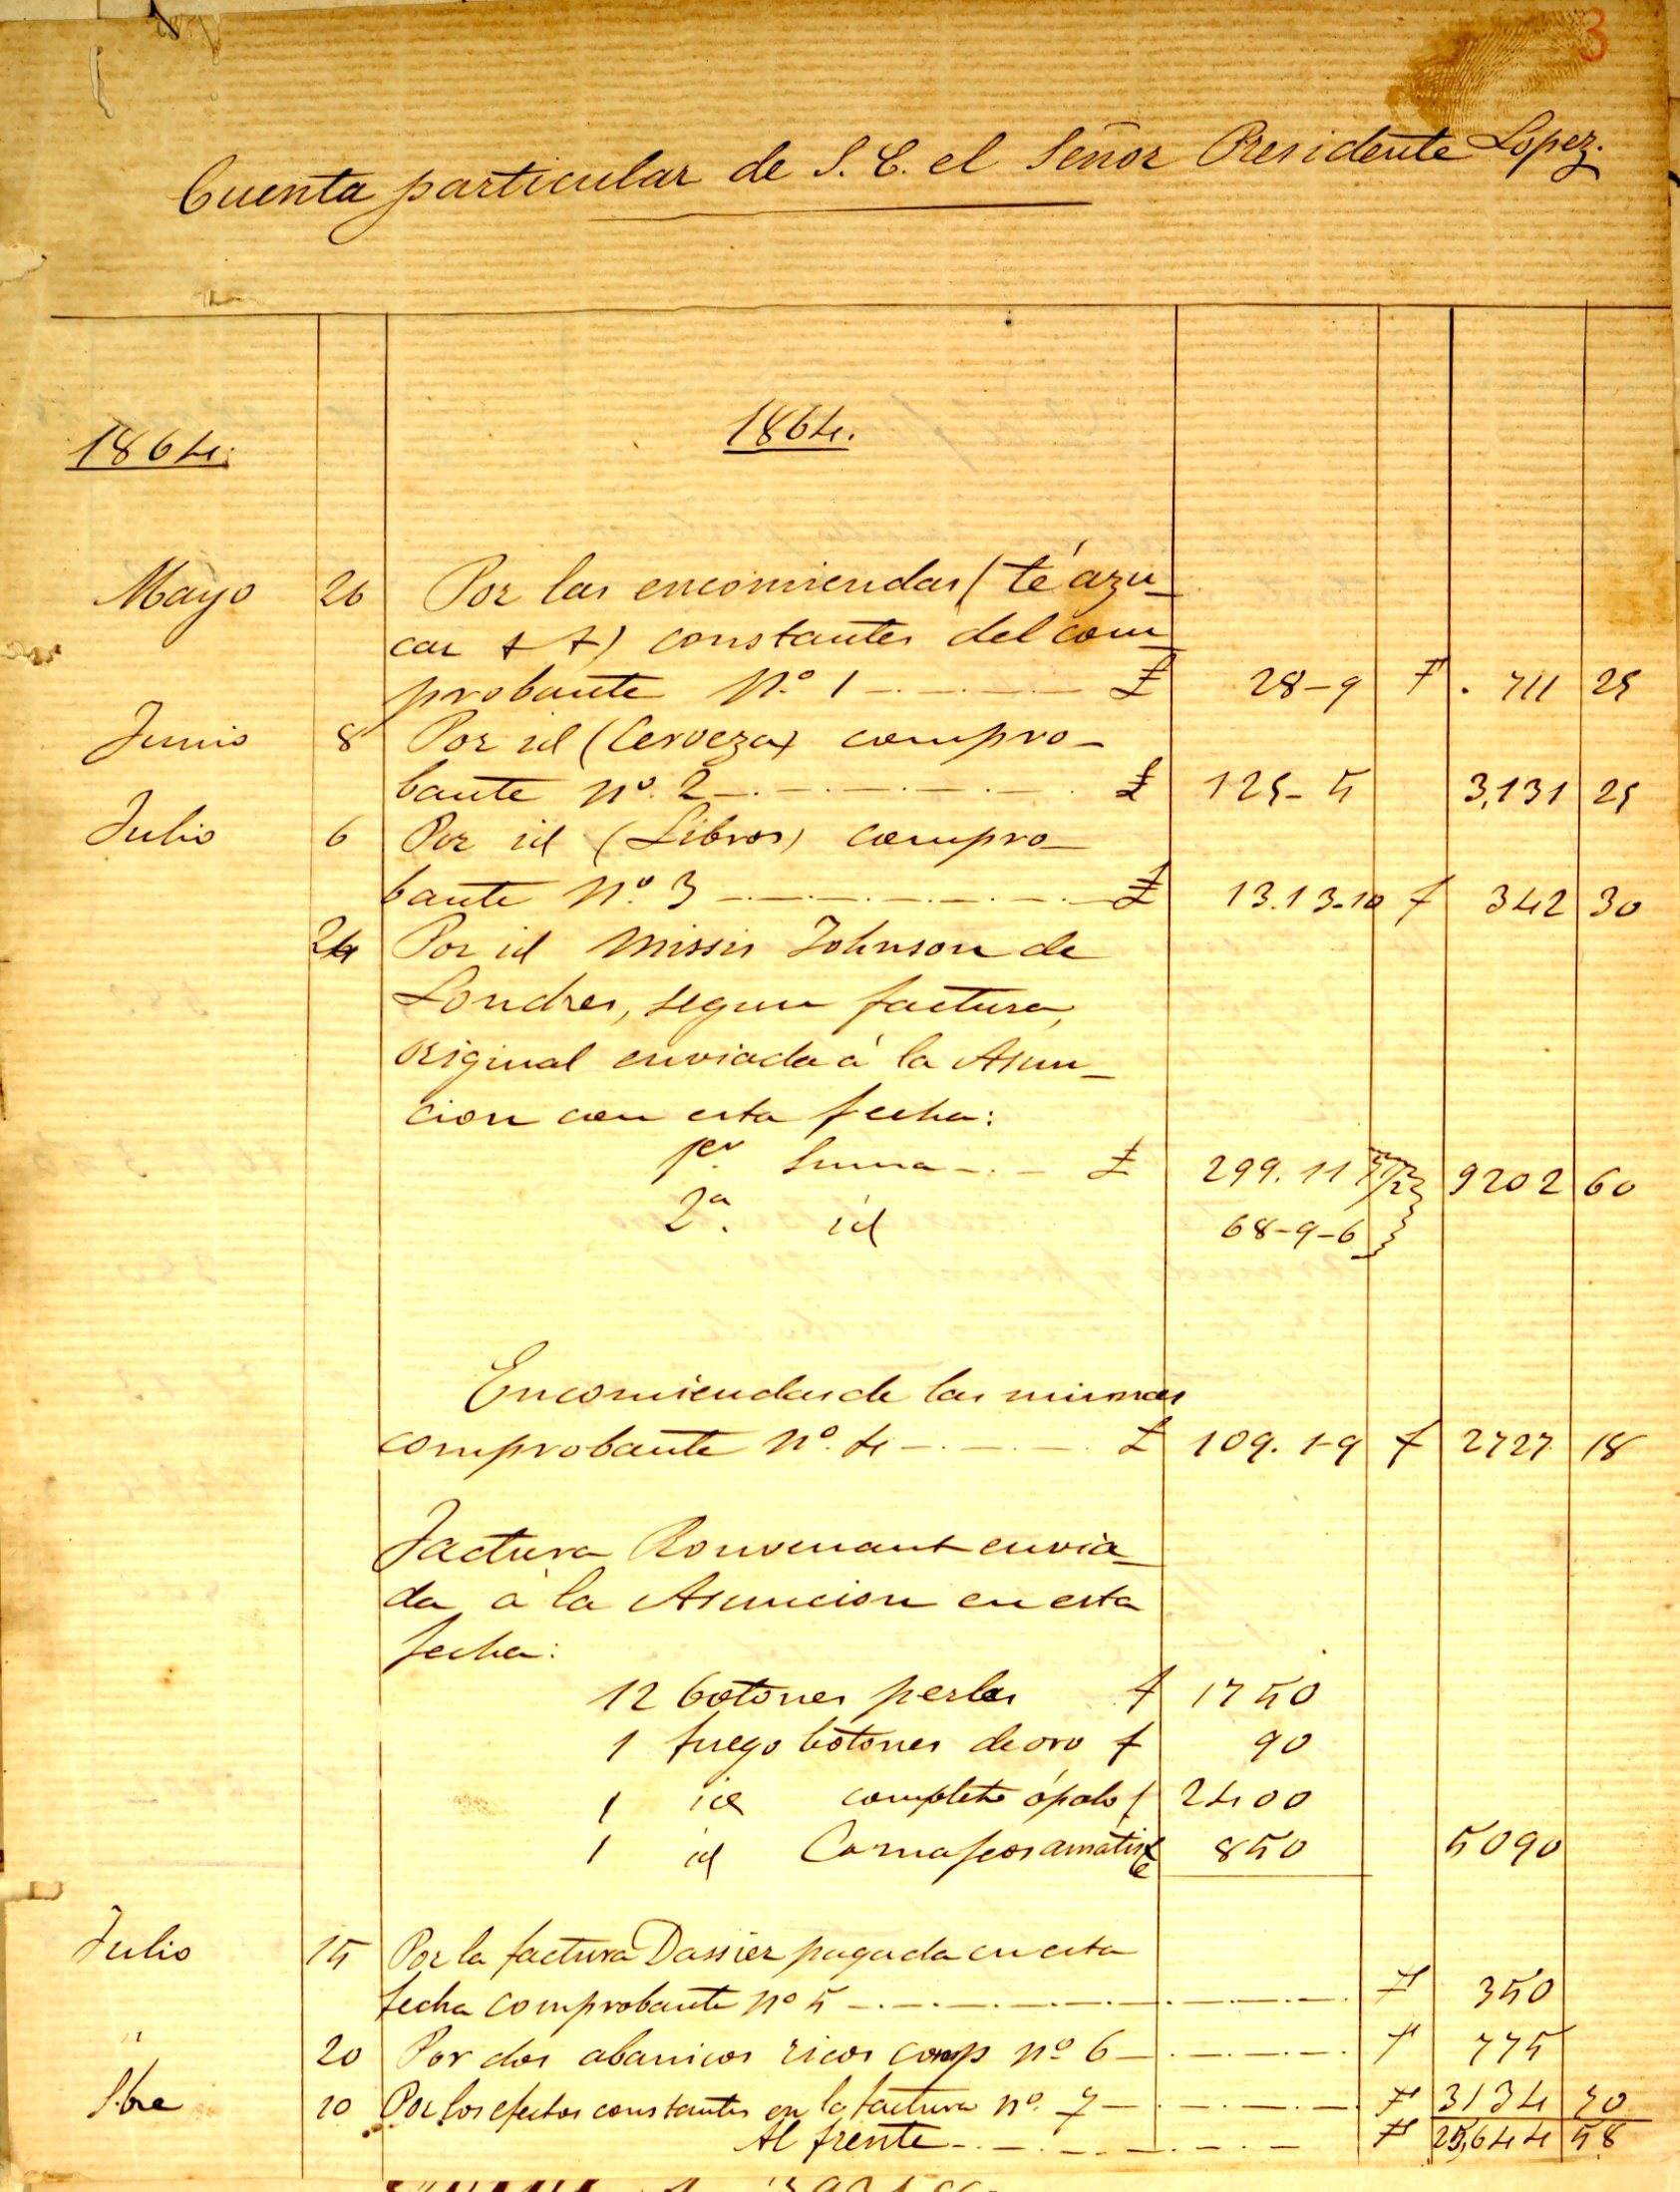 3
Cuenta particular de S. E. el Señor Presidente Lopez.
1864. 1864.
Mayo 26 Por las encomiendas (té azu-
car & &) constantes del com-
probante Nº 1 £ 28-9 F. 711 25
Junio 8 Por id (Cerveza) compro-
bante nº 2 £ 125-5 3,131 25
Julio 6 Por id (Libros) compro-
bante Nº 3 £ 13.13-10 f 342 30
24 Por id Missis Johnson de
Londres, segun factura,
original enviada á la Asun-
cion con esta fecha:
pr. Suma £ 299.11 9202 60
2ª. id 68-9-6
Encomiendas de las mismas
comprobante Nº 4 £ 109.1-9 f 2727 18
Factura Rouvenant envia-
da á la Asuncion en esta
fecha:
12 botones perlas f 1750
1 juego botones de oro f 90
1 id completo ópalo f 2400
1 id Camafeos amatiste 850 5090
Julio 15 Por la factura Dassier pagada en esta
fecha comprobante Nº 5 F 350
" 20 Por dos abanicos ricos comp Nº 6 F 775
10 Por los efectos constantes en la factura Nº 7 F 3134
Al frente F 25,644 58